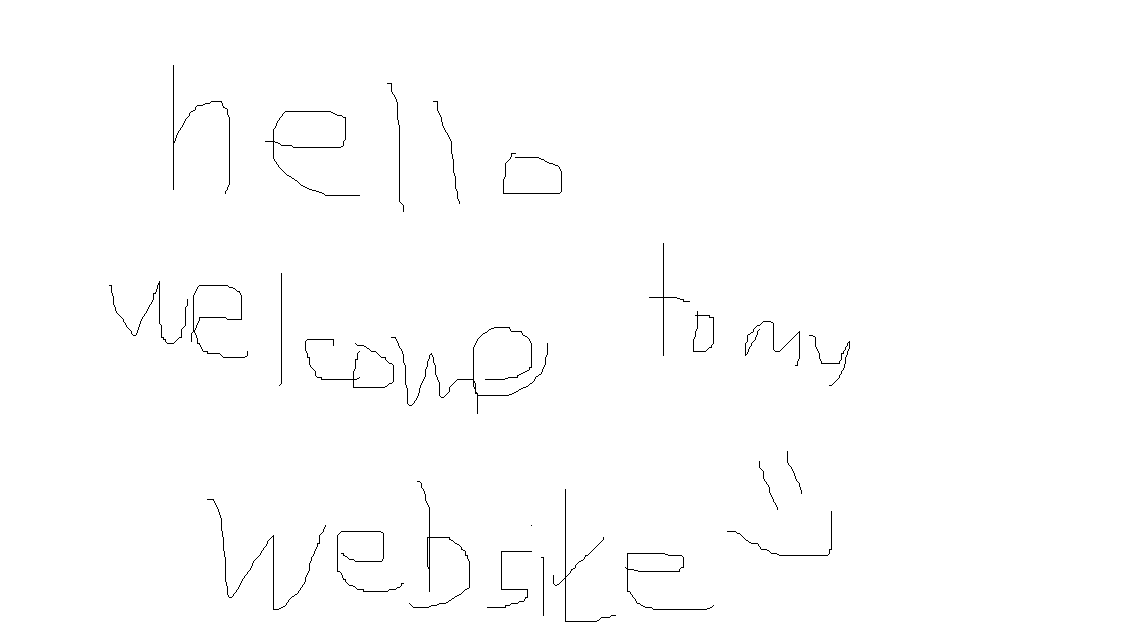 hello
welcome to my
website